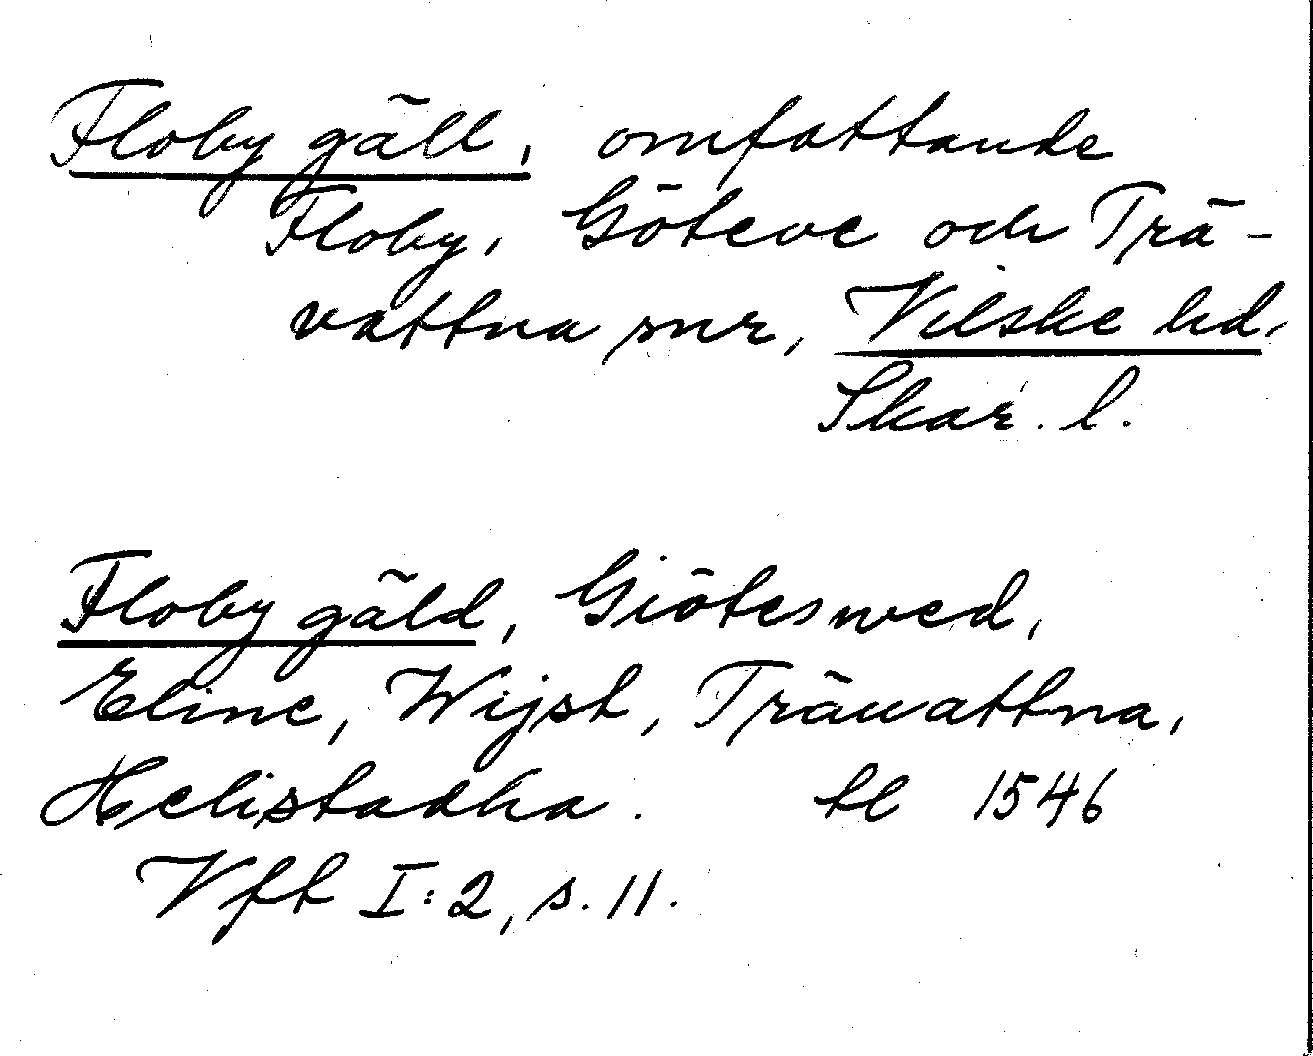 Floby gäll, omfattande
Floby, Göteve och Trä-
vattna snr, Vilske hd,
Skar. l.
Floby gäld, Giöteswed,
Eline, Wijst, Träwattna,
Helistadha. tl 1546
Vft I:2, s. 11.